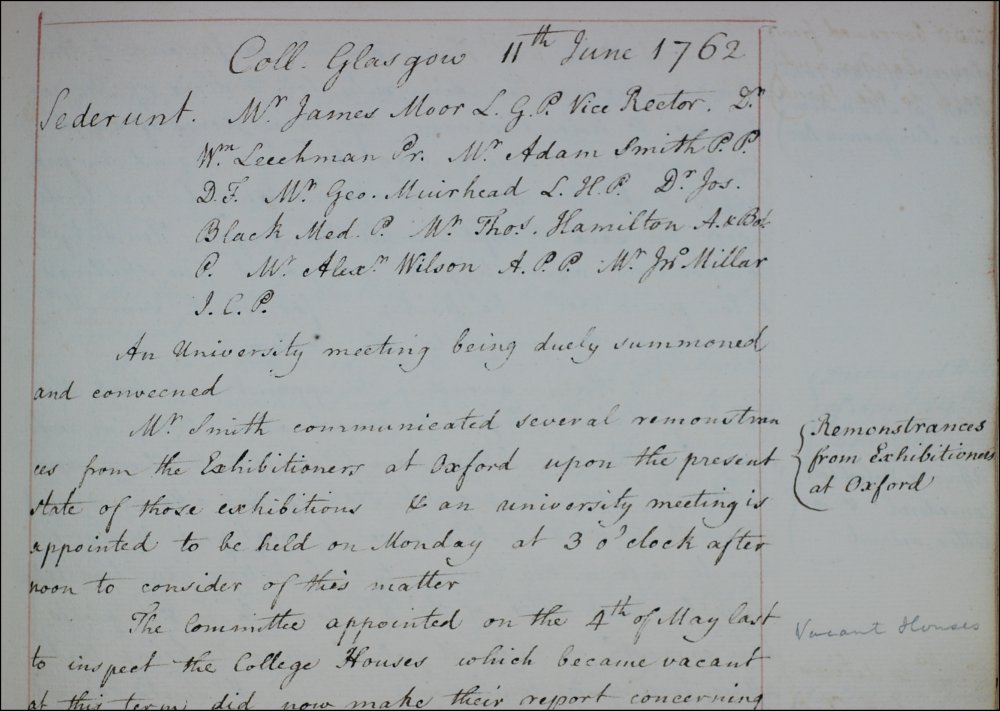 Coll. Glasgow 11th June 1762
Sederunt. Mr James Moor L. G. P. Vice Rector. Dr
Wm Leechman Pr. Mr Adam Smith P. P.
D. F. Mr Geo. Muirhead L. H. P. Dr Jos.
Black Med. P. Mr Thos. Hamilton A. & Bot.
P. Mr Alexr Wilson A. P. P. Mr Jno Millar
J. C. P.
An University meeting being duely summoned
and conveened
Mr Smith communicated several remonstran
ces from the Exhibitioners at Oxford upon the present
state of those exhibitions & an university meeting is
appointed to be held on Monday at 3 o'clock after
noon to consider of this matter
The Committee appointed on the 4th of May last
to inspect the College Houses which became vacant
at this term did now make their report concerning
Remonstrances
from Exhibitioners
at Oxford
Vacant Houses